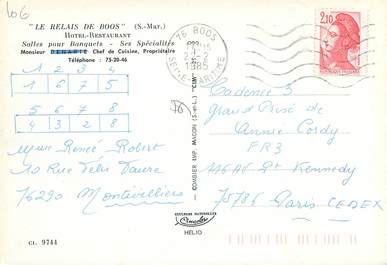 606
"LE RELAIS DE BOOS" (S.-Mar.)
HOTEL-RESTAURANT
Salles pour Banquets - Ses Spécialités
Monsieur Chef de Cuisine, Propriétaire
Téléphone : 75-20-46
1 2 3 4
1 6 7 5
5 6 7 8
4 3 2 8
Mme Renée Robert
10 Rue Félix Faure
76290 Montivilliers
CI. 9744
"CIM" COMBIER IMP. MACON (S.-et-L.)
COULEURS NATURELLES
HELIO
76 BOOS
1985
SEINE MARITIME
2,10
Cadence 3
Grand Prix de
Annie Cordy
FR3
116 Av Pt Kennedy
75786 Paris CEDEX